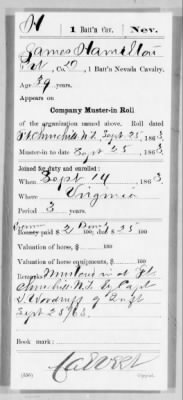 H 1 Batt'n Cav. Nev.
James Hamilton
Pvt, Co. D, 1 Batt'n Nevada Cavalry.
Age 39 years.
Appears on
Company Muster-in Roll
of the organization named above. Roll dated
Ft Churchill N.T. Sept 25, 1863.
Muster-in to date Sept 25, 1863.
Joined for duty and enrolled:
When Sept 14, 1863.
Where Virginia
Period 3 years.
Bounty paid $ 100; due $ 25 100
Valuation of horse, $ 100
Valuation of horse equipments, $ 100
Remarks: Mustered in at Ft.
Churchill N.T. by Capt
Sept 25/63.
Book mark:
(356) Copyist.